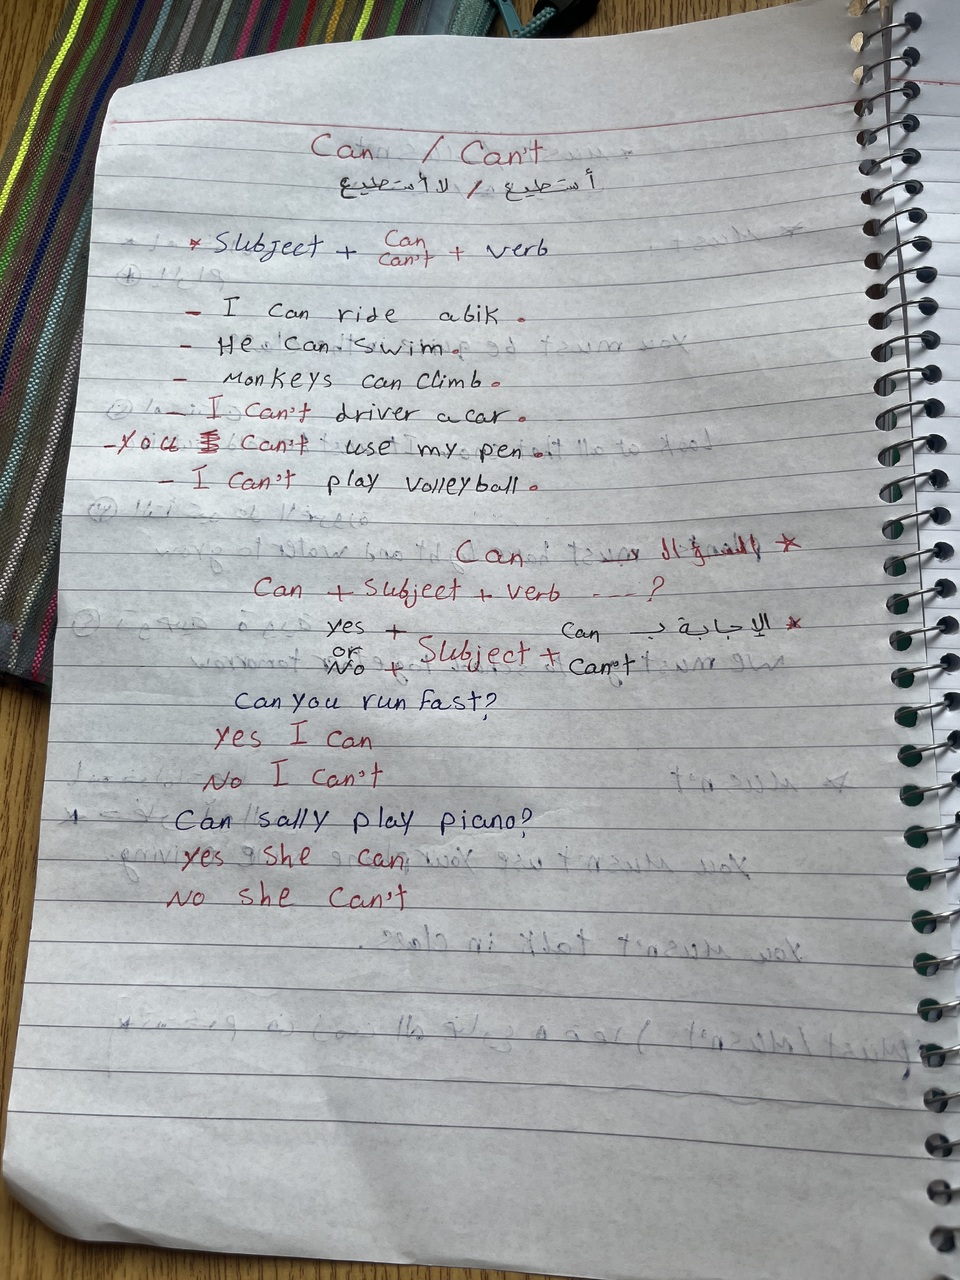 Can / Can't
أستطيع / لا أستطيع
* Subject + Can Can't + verb
- I Can ride a bik.
- He Can swim.
- Monkeys can climb.
- I Can't driver a car.
- You Can't use my pen.
- I Can't play volleyball.
* Can
Can + Subject + verb ----?
* الإجابة بـ Can
yes +
or
No + Subject + Can't
Can you run fast?
yes I can
No I can't
Can sally play piano?
yes she can
No she Can't